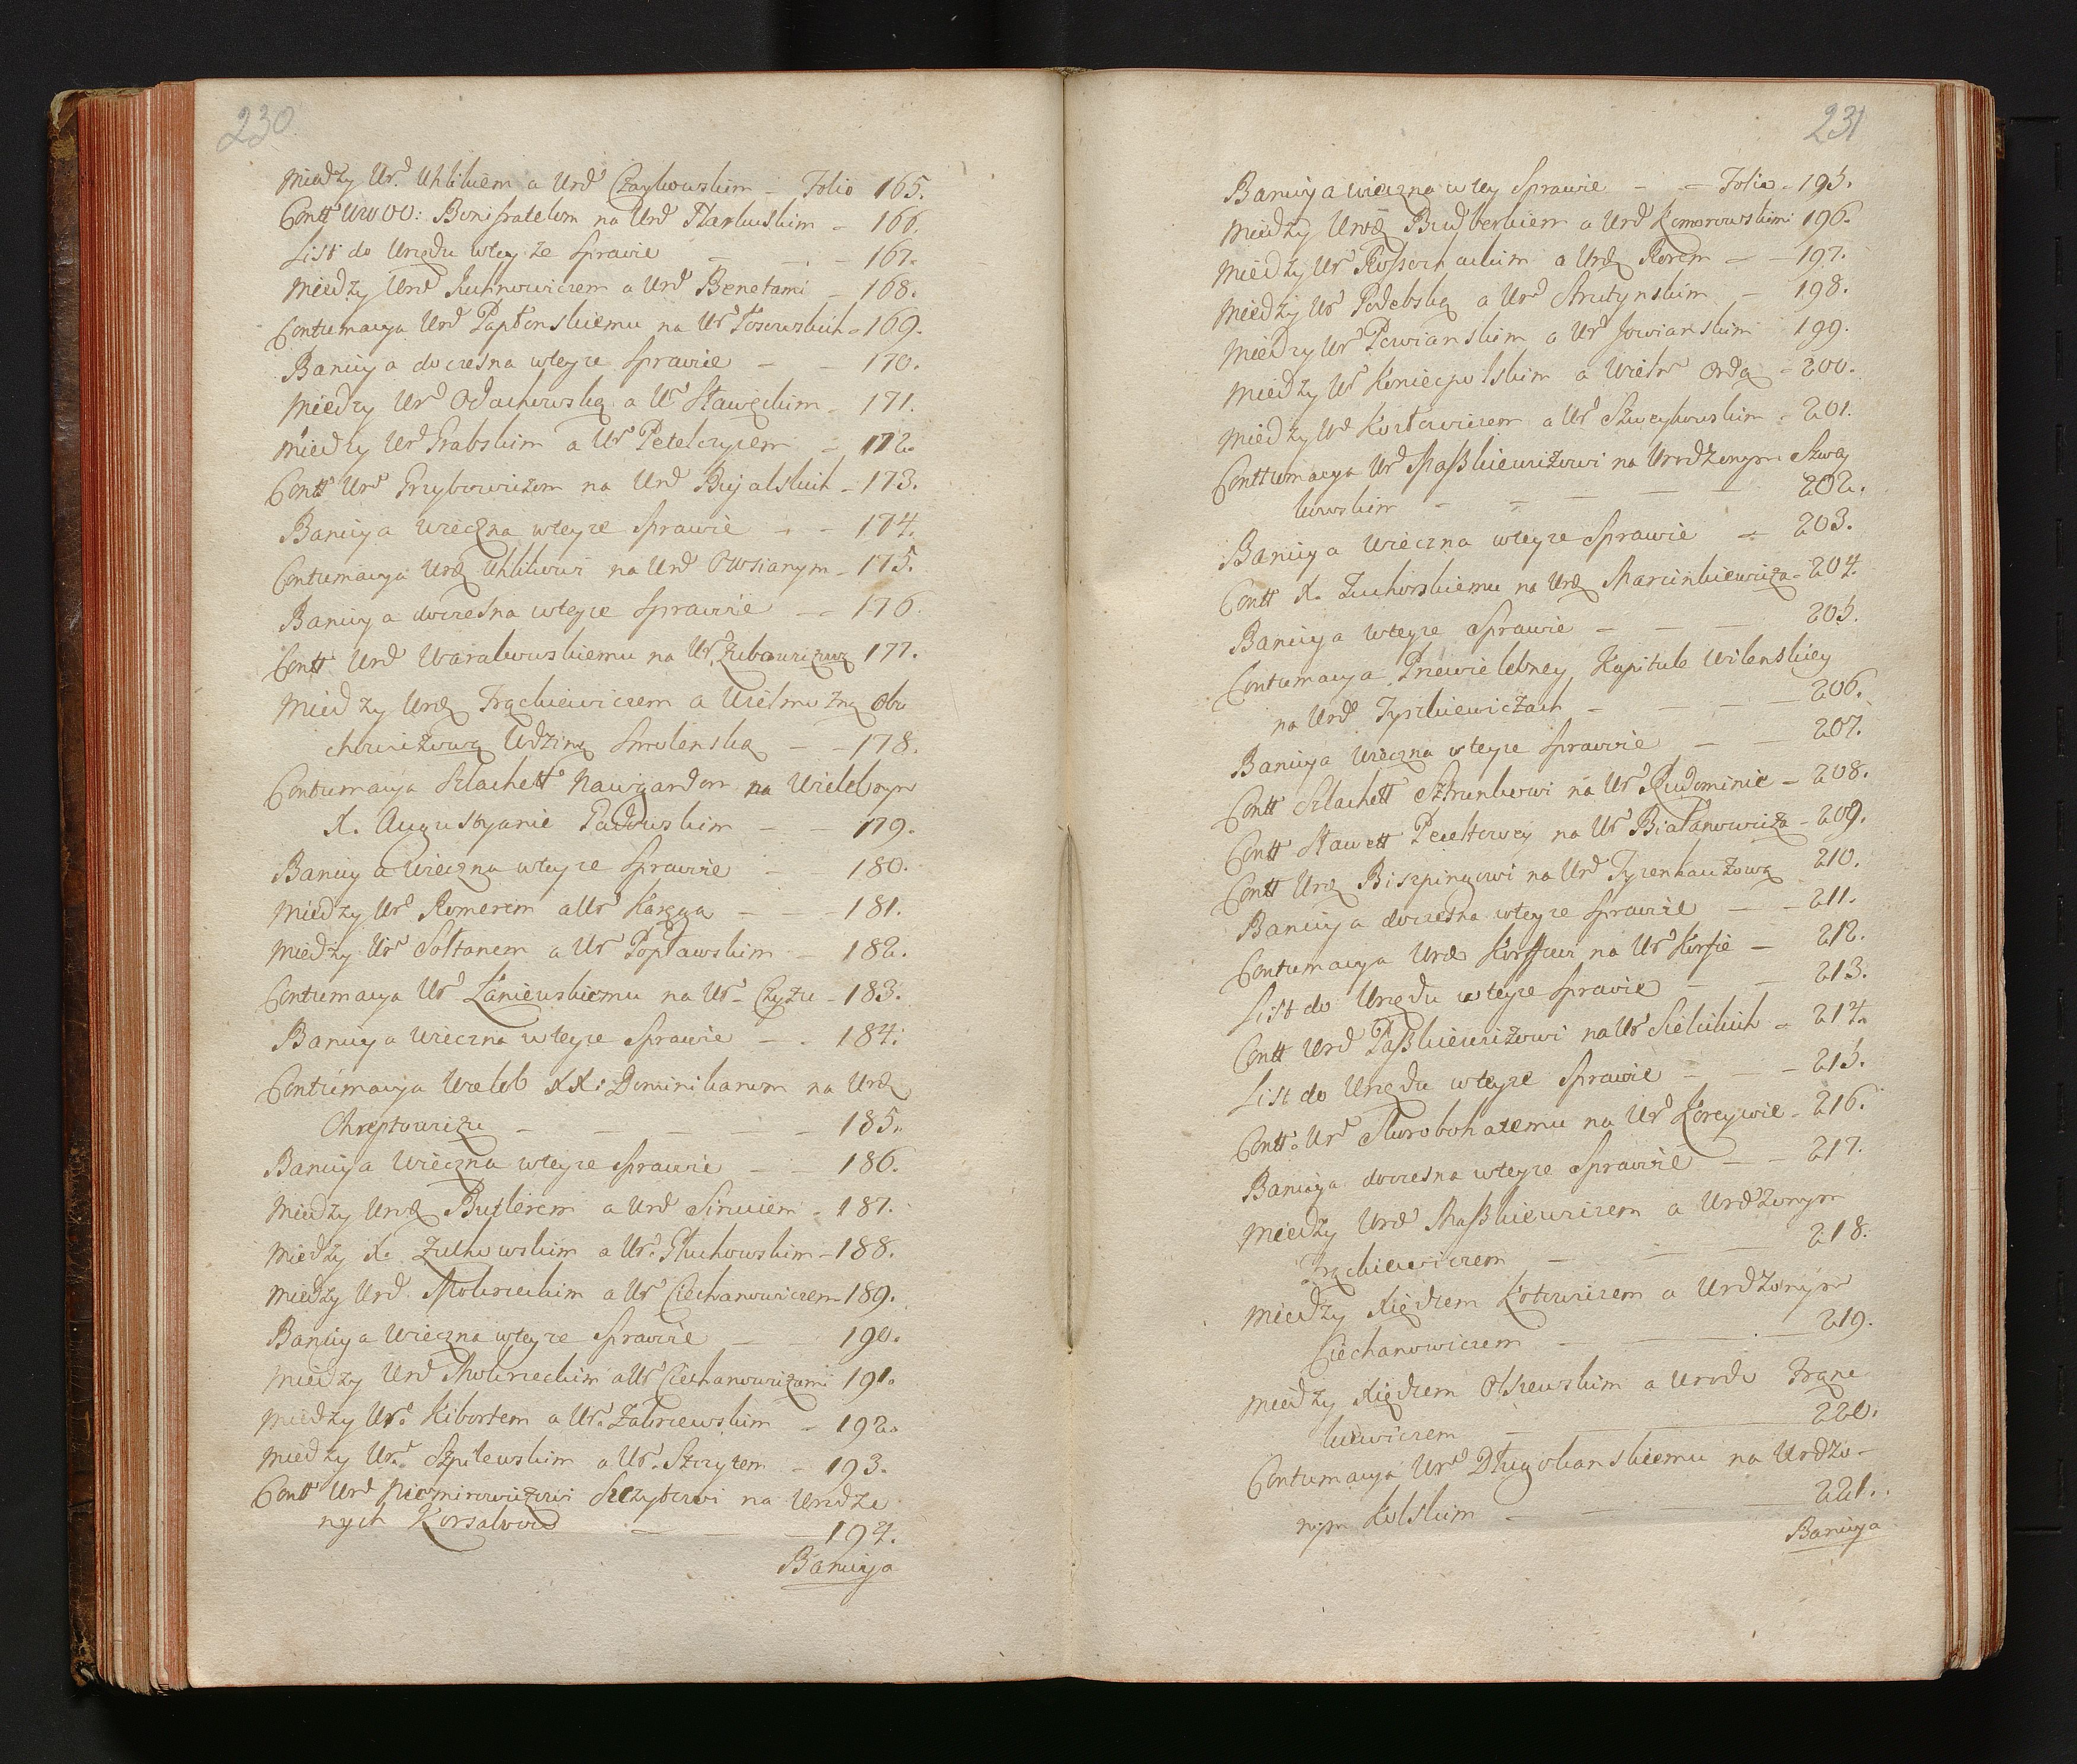 230
Między Ur. Uhlikiem a Urd Czaykowskim – Folio 165.
Contt WW. OO: Bonifratelom na Urd Narkuskim – 166.
List do Urzędu wtey że Sprawie – – – 167.
Między Urd Kuhnowiczem a Urd Benetami – 168.
Contumacya Urd Papłonskiemu na Ur Łosowskich – 169.
Banicya doczesna wteyze Sprawie – – 170.
Między Urd Odachowską a Ur Sławęckim – 171.
Między Urd Grabskim a Ur Petelczycem – 172.
Contt Urd Grzybowiczom na Urd Bujalskich – 173.
Banicya wieczna wteyze Sprawie – – 174.
Contumacya Urd Uhlikowi na Urd Owsianym – 175.
Banicya doczesna wteyze Sprawie – – 176.
Contt Urd Warakowskiemu na Ur. Zubowiczową 177.
Między Urd Frąckiewiczem a Wielmożną Obu
chowiczową Udziną Smolenską – – 178.
Contumacya Szlachett Nawgardom na Wielebnym
X. Augustyanie Padowskim – – 179.
Banicya wieczna wteyze Sprawie – – 180.
Między Ur Romerem a Ur Kargą – – – 181.
Między Ur Sołtanem a Ur Popławskim – 182.
Contumacya Ur Łaniewskiemu na Ur. Czyżu – 183.
Banicya wieczna wteyze Sprawie – . 184.
Contumacya Wieleb XX: Dominikanom na Urd
Chreptowiczu – – – – – 185.
Banicya wieczna wteyze Sprawie – – 186.
Między Urd Butlerem a Urd Siruciem – 187.
Między X. Żuchowskim a Ur. Głuchowskim – 188.
Między Urd. Mokrzeckim a Ur Ciechanowiczem – 189.
Banicya wieczna wteyze Sprawie – – 190.
Między Urd Mokrzeckim a Ur Ciechanowiczami 191.
Między Ur. Kibortem a Ur. Zakrzewskim – 192.
Między Ur. Szpilewskim a Ur. Szczytem – 193.
Contt Urd Niemirowiczowi Szczytowi na Urodzo
nych Korsakow – – – 194.
Banicya
231
Banicya wieczna wtey Sprawie – – Folio – 195.
Między Urd Budberkiem a Urd Komorowskim 196.
Między Ur Rossochackim a Urd Korem – – 197.
Między Ur Podebską a Urd Strutynskim – 198.
Między Ur Powianskim a Ur Jowianskim 199.
Między Ur Koniecpolskim a Wielm Ordą – 200.
Między Ur Kozłowiczem a Ur Szweykowskim – 201.
Conttumacya Urd Maszkiewiczowi na Urodzonym Szwey
kowskim – – – – – 202.
Banicya wieczna wteyze Sprawie – 203.
Contt X. Zuchorskiemu na Urd Marcinkiewicza – 204.
Banicya wteyze Sprawie – – – 205.
Contumacya Przewielebney Kapitule Wilenskiey
na Urd Tyszkiewiczach – – – – 206.
Banicya wieczna wteyze Sprawie – – 207.
Contt Szlachett Sztrunkowi na Ur Rudominie – 208.
Contt Sławett Peceltowey na Ur Białanowicza – 209.
Contt Urd Biszpingowi na Urd Tyzenhauzową 210.
Banicya doczesna wteyze Sprawie – – 211.
Contumacya Urd Korffowi na Ur Korfie – 212.
List do Urzędu wteyze Sprawie – – 213.
Contt Urd Paszkiewiczowi na Ur Sielickich – 214.
List do Urzędu wteyze Sprawie – – – 215.
Contt. Ur Sturobohatemu na Ur Koreywie – 216.
Banicya doczesna wteyze Sprawie – – 217.
Między Urd Maszkiewiczem a Urodzonym
Frąckiewiczem – – – 218.
Między Xiędzem Kotowiczem a Urodzonym
Ciechanowiczem – – – – 219.
Między Xiędzem Olszewskim a Urodz Franc
kiewiczem – – – 220.
Contumacya Ur Długokanskiemu na Urodzo–
nym Kulskim – – – 221.
Banicya